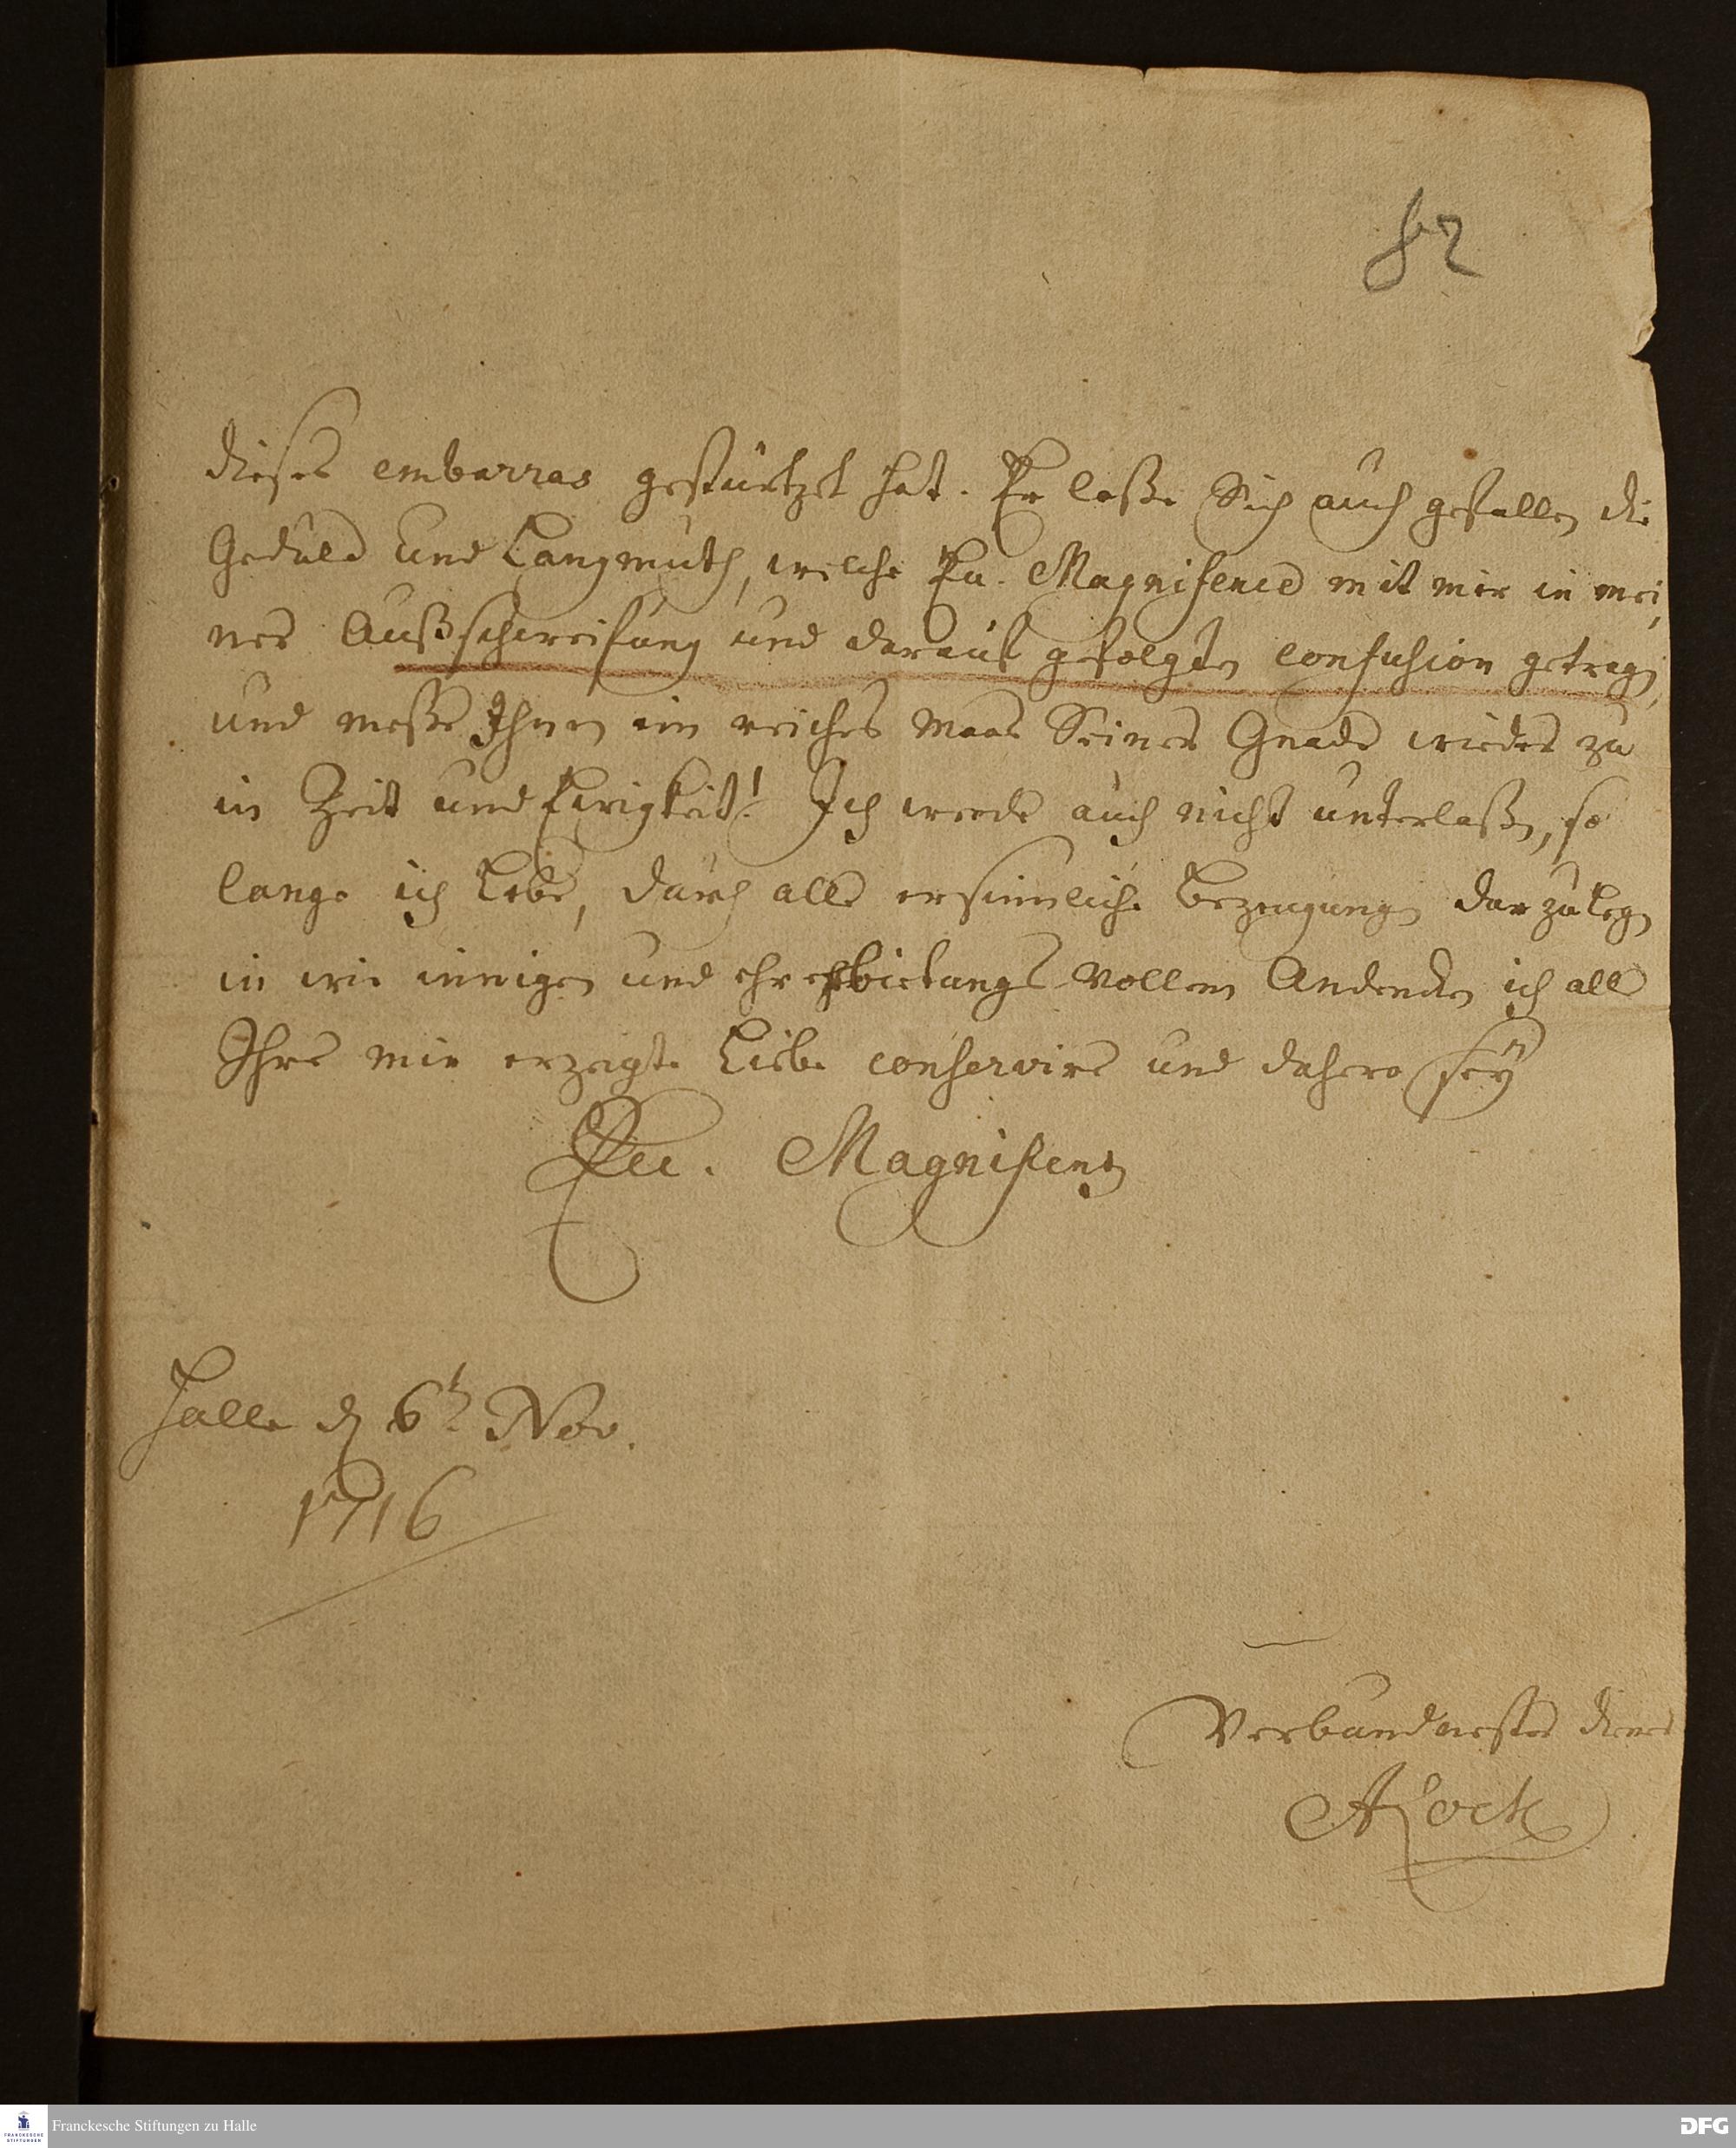 82
dieses embarras gestürtzet hat. Er laße Sich auch gefallen die
Gedult und Langmuth, welche Eu. Magnificence mit mir in mei
ner Außschweifung und darauf gefolgten confusion getragen,
und meße Ihnen ein reiches Maas Seiner Gnade wieder zu
in Zeit und Ewigkeit! Ich werde auch nicht unterlaßen, so
lange ich Lebe, durch alle ersinnliche Bezeugungen darzulegen
in wie innigen und ehrerbietungs-vollem Andencken ich all
Ihre mir erzeigte Liebe conservire und dahero sey
Eu. Magnificentz
Halle d 6t Nov.
1716
Verbundnester diener
Franckesche Stiftungen zu Halle
FRANCKESCHE
STIFTUNGEN
DFG